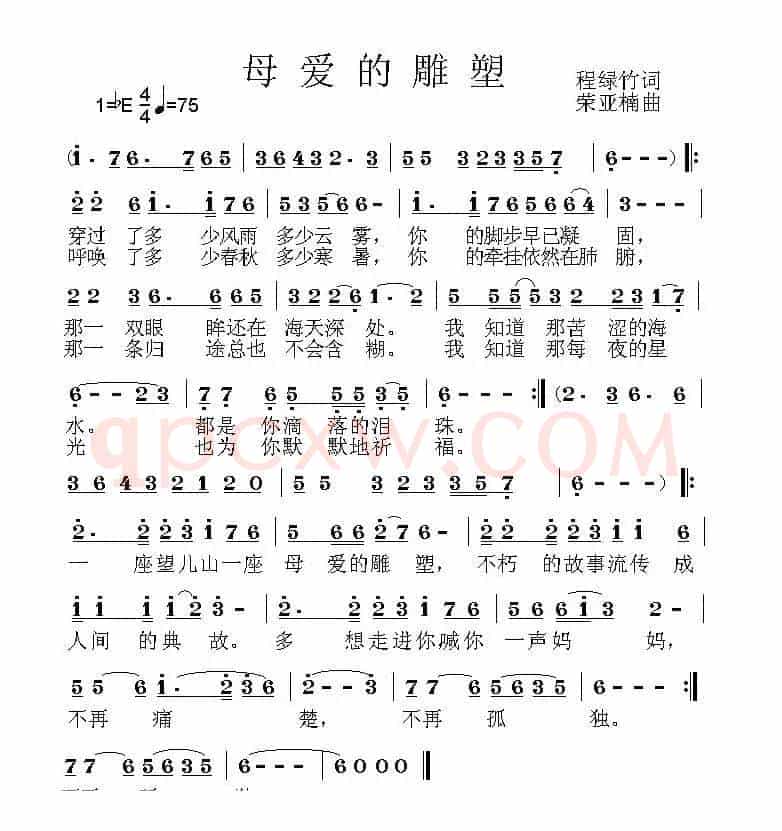 母爱的雕塑
程绿竹词
1=♭E 4/4 ♩=75
荣亚楠曲
(i· 7 6· 7 6 5 | 3 6 4 3 2· 3 | 5 5 3 2 3 3 5 7 | 6 - - - ) ‖:
2 2 6 1· 1 7 6 | 5 3 5 6 6 - | 1· 1 7 6 5 6 6 4 | 3 - - - |
穿过 了多 少风雨 多少云 雾， 你 的脚步早已凝 固，
呼唤 了多 少春秋 多少寒 暑， 你 的牵挂依然在肺 腑，
2 2 3 6· 6 6 5 | 3 2 2 6 1· 2 | 5 5 5 5 3 2 2 3 1 7 |
那一 双眼 眸还在 海天深 处。 我 知道 那苦 涩的海
那一 条归 途总也 不会含 糊。 我 知道 那每 夜的星
6 - - 2 3 | 7 7 6 5 5 5 3 5 | 6 - - - :‖ (2· 3 6· 6
水。 都是 你滴 落的泪 珠。
光 也为 你默 默地祈 福。
qpcxw.COM
3 6 4 3 2 1 2 0 | 5 5 3 2 3 3 5 7 | 6 - - - ) ‖:
2· 2 2 3 1 7 6 | 5 6 6 2 7 6 | 2 2 2 2 3 1 1 6 |
一 座望儿山一座 母 爱的雕 塑， 不朽 的故事流传成
1 1 1 1 2 3 - | 2· 2 2 3 1 7 6 | 5 6 6 1 3 2 - |
人间 的典 故。 多 想走进你喊你 一声妈 妈，
5 5 6 1· 2 3 6 | 2 - - 3 | 7 7 6 5 6 3 5 | 6 - - - :‖
不再 痛 楚， 不再 孤 独。
7 7 6 5 6 3 5 | 6 - - - | 6 0 0 0 ‖